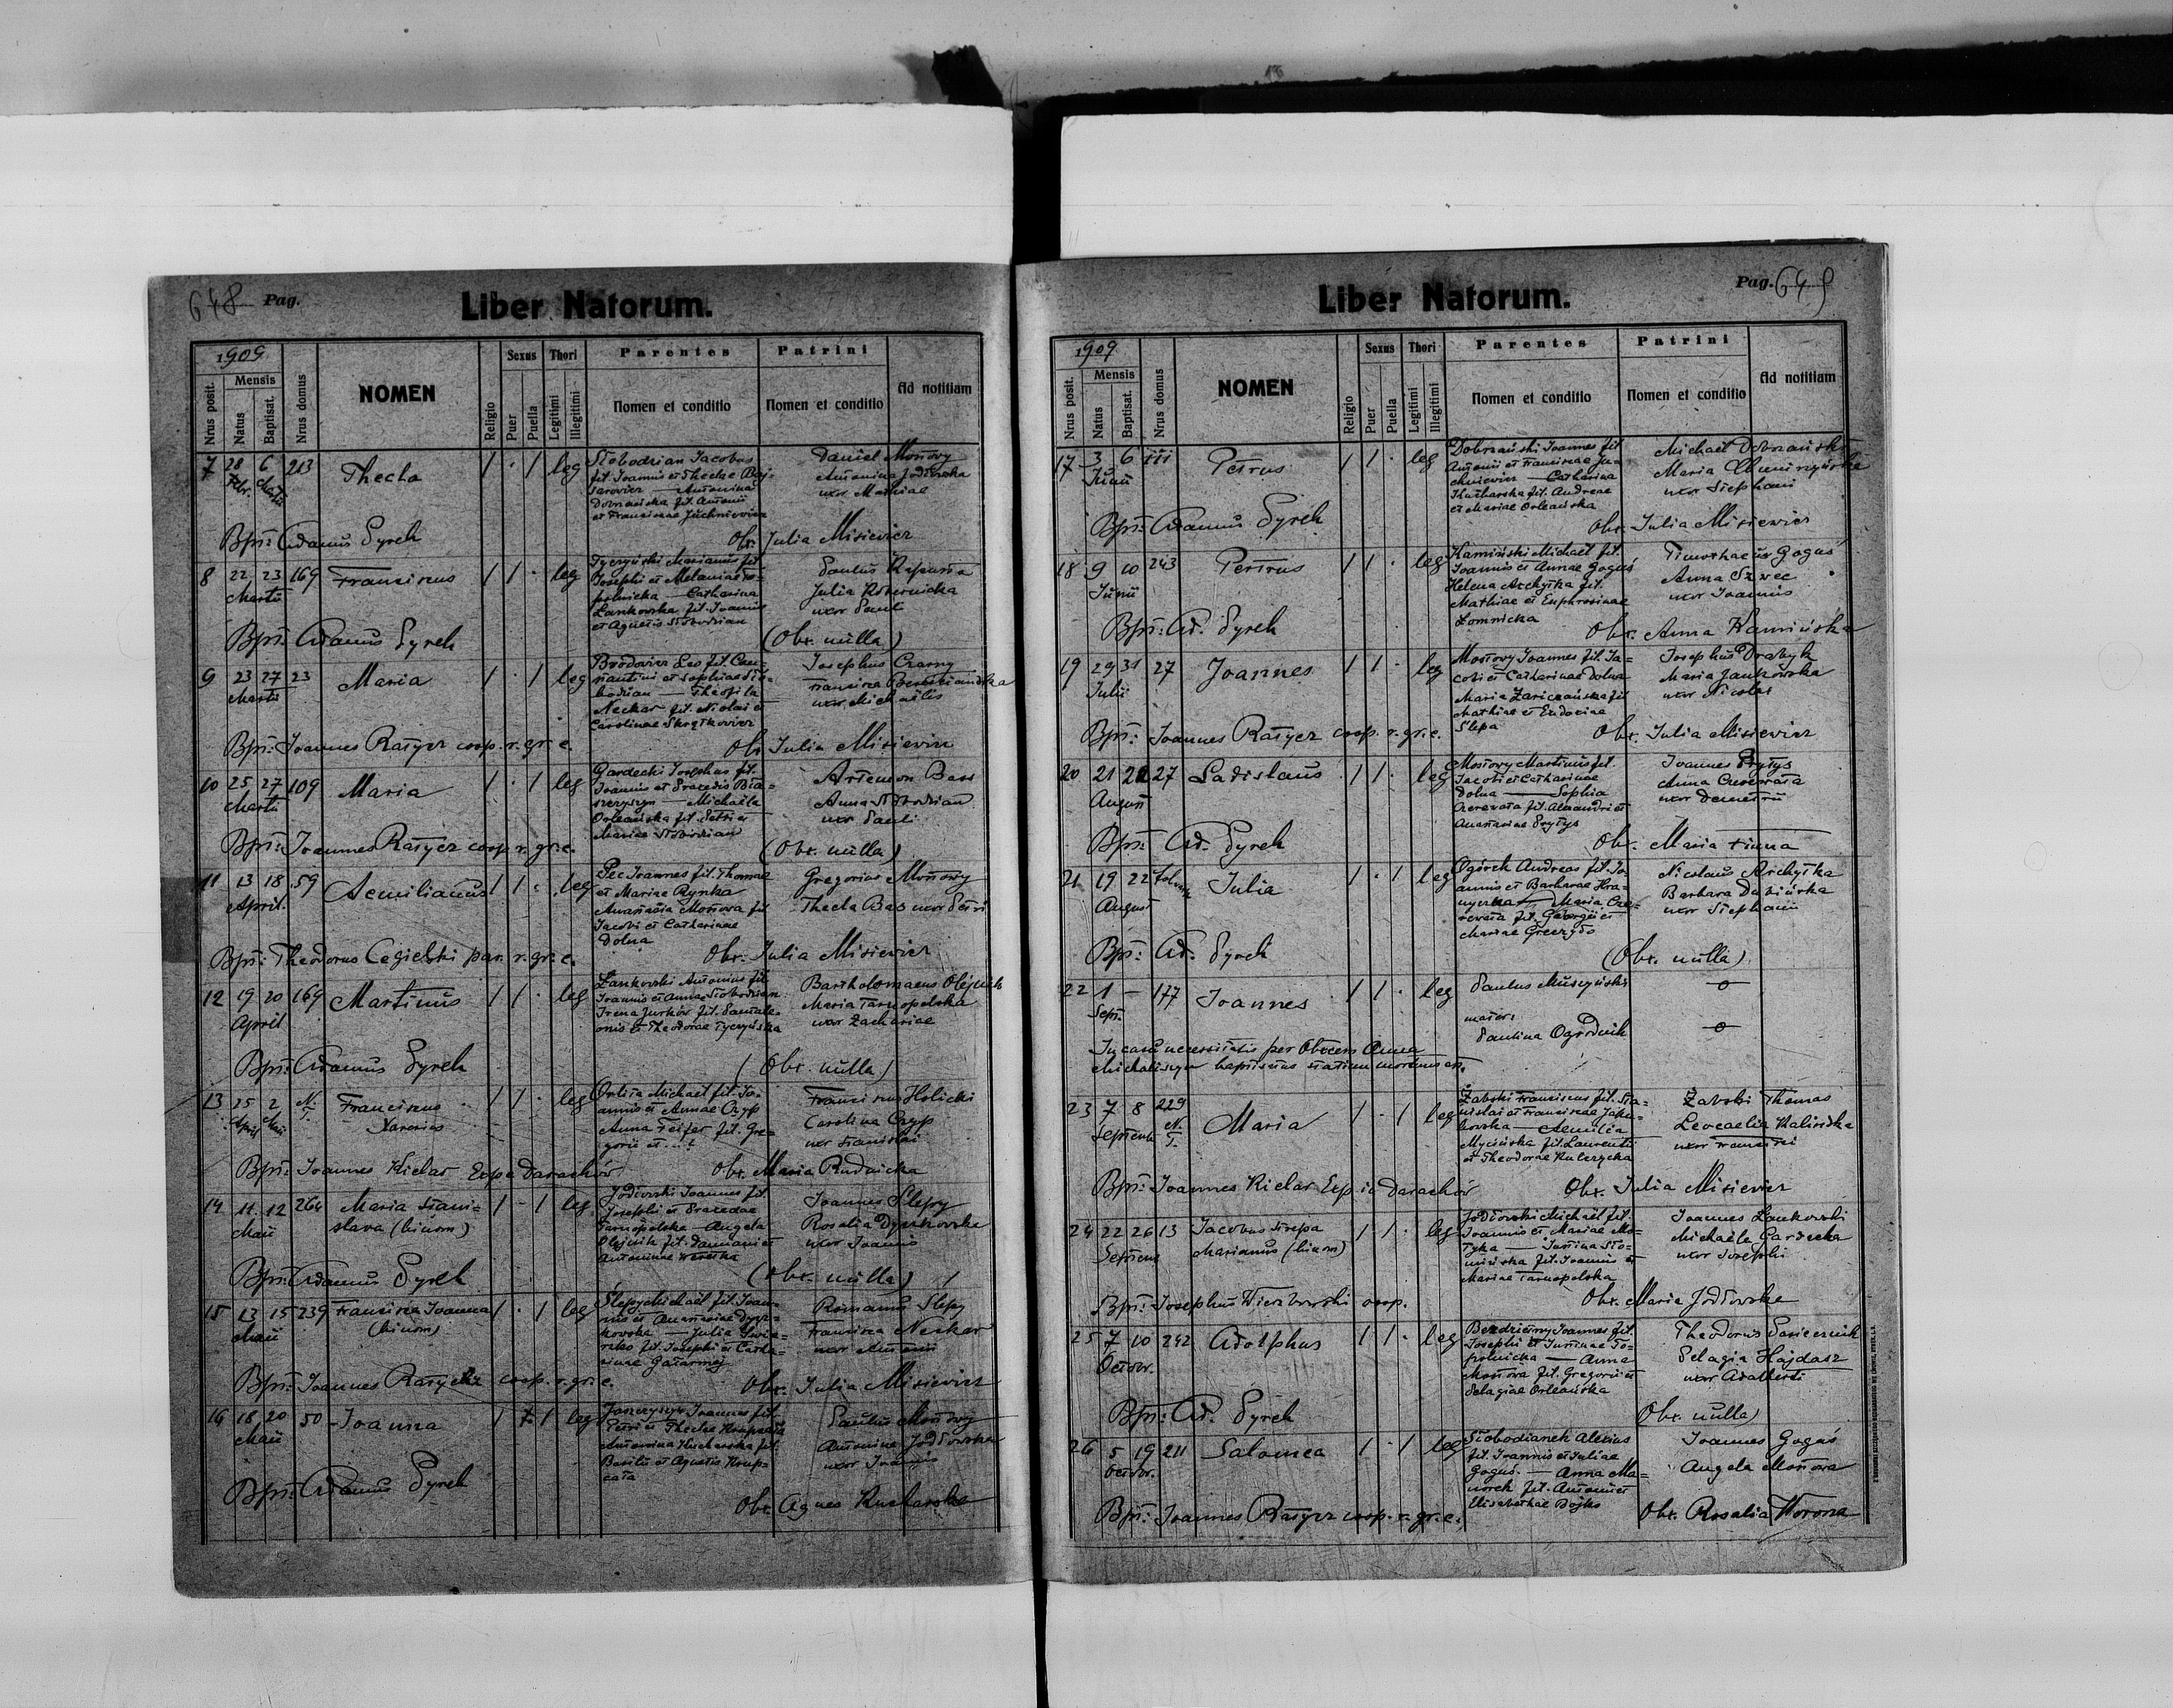 648 Pag.
Liber Natorum.
1909
Nrus posit.
Mensis
Natus
Baptisat.
Nrus domus
NOMEN
Religio
Sexus
Puer
Puella
Thori
Legitimi
Illegitimi
Parentes
Nomen et conditio
Patrini
Nomen et conditio
Ad notitiam
7 28 6 213 Thecla 1 · 1 leg
Febr. Martii
Słobodzian Jacobus
fil. Joannis et Theclae
Antonina
fil. Antonii
et Franciscae Juchniewicz
Daniel Mostowy
Antonina Jodłowska
uxor
Bpt: Adamus Pyrch
Obx. Julia Misiewicz
8 22 23 169 Franciscus 1 1 · leg
Martii
Tyczyński Marianus fil.
Josephi et Melaniae To-
polnicka — Catharina
Łankowska fil. Joannis
et Agnetis Słobodzian
Paulus
Julia
uxor Pauli
Bpt: Adamus Pyrch
(Obx. nulla)
9 23 27 23 Maria 1 · 1 leg
Martii
Leo fil.
et Sophiae Sło-
bodzian — Theofila
Neckar fil. Nicolai et
Carolinae
Josephus Czarny
Francisca
uxor Michaelis
Bpt: Joannes Ratycz coop. r. gr. c.
Obx. Julia Misiewicz
10 25 27 109 Maria 1 · 1 leg
Martii
Gardecki Josephus fil.
Joannis et Praxedis
— Michaela
Orleańska fil. Petri et
Mariae Słobodzian
Artemon Bass
Anna Słobodzian
uxor Pauli
Bpt: Joannes Ratycz coop. r. gr. c.
(Obx. nulla)
11 13 18 59 Aemilianus 1 1 · leg
April.
Pec Joannes fil. Thomae
et Mariae Rynka
Anastasia Mostowa fil
Jacobi et Catharinae
Dolna
Gregorius Mostowy
Thecla Bas uxor Petri
Bpt: Theodorus Cegielski par. r. gr. c.
Obx. Julia Misiewicz
12 19 20 169 Martinus 1 1 · leg
April
Łankowski Antonius fil
Joannis et Annae Słobodzian
Irena Jurków fil. Pantale-
onis et Theodorae Tyczyńska
Bartholomaeus Olejnik
Maria Tarnopolska
uxor Zachariae
Bpt: Adamus Pyrch
(Obx. nulla)
13 25 2 N. Franciscus 1 1 · leg
April Maii T. Xaverius
Michael fil. Jo-
annis et Annae Czyp
Anna Feifer fil. Gre-
gorii et ...?
Franciscus Holicki
Carolina Czyp
uxor Stanislai
Bpt: Joannes Kielar Exp. e Darachów
Obx. Maria Rudnicka
14 11 12 264 Maria Stani- 1 - 1 leg
Maii slava (binom)
Jodłowski Joannes fil.
Josephi et Praxedae
Tarnopolska — Angela
Olejnik fil. Damiani et
Antoninae
Joannes Slepy
Rosalia Dynkowska
uxor Joannis
Bpt: Adamus Pyrch
(Obx. nulla)
15 13 15 239 Francisca Joanna 1 · 1 leg
Maii (binom)
Slepy Michael fil. Joan-
nis et Anastasiae
— Julia
fil. Josephi et Catha-
rinae
Romanus Slepy
Francisca Neckar
uxor Antonii
Bpt: Joannes Ratycz coop. r. gr. c.
Obx. Julia Misiewicz
16 18 20 50 Joanna 1 1 leg
Maii
Jaszczyszyn Joannes fil.
Petri et Theclae
Antonina Kucharska fil.
Basilii et Agnetis Krup-
cała
Paulus Mostowy
Antonina Jodłowska
uxor Joannis
Bpt: Adamus Pyrch
Obx. Agnes Kucharska
Pag. 649
Liber Natorum.
1909
Nrus posit.
Mensis
Natus
Baptisat.
Nrus domus
NOMEN
Religio
Sexus
Puer
Puella
Thori
Legitimi
Illegitimi
Parentes
Nomen et conditio
Patrini
Nomen et conditio
Ad notitiam
17 3 6 111 Petrus 1 1 · leg
Junii
Dobrzański Joannes fil
Antonii et Franciscae Ju-
chniewicz — Catharina
Kucharska fil. Andreae
et Mariae Orleańska
Michael Dobrzański
Maria
uxor Stephani
Bpt: Adamus Pyrch
Obx. Julia Misiewicz
18 9 10 243 Petrus 1 1 · leg
Junii
Kamiński Michael fil.
Joannis et Annae Goguś
Helena Archytka fil.
Mathiae et Euphrosinae
Łomnicka
Timothaeus Goguś
Anna Szwec
uxor Joannis
Bpt: Ad. Pyrch
Obx. Anna Kamińska
19 29 31 27 Joannes 1 1 · leg
Julii
Mostowy Joannes fil. Ja-
cobi et Catharinae Dolna
Maria Zariczańska fil
Mathiae et Eudociae
Slepa
Josephus Drabyk
Maria Jankowska
uxor Nicolai
Bpt: Joannes Ratycz coop. r. gr. c.
Obx. Julia Misiewicz
20 21 22 27 Ladislaus 1 1 · leg
August
Mostowy Martinus fil.
Jacobi et Catharinae
Dolna — Sophia
Czerewata fil. Alexandri et
Anastasiae Prytys
Joannes Prytys
Anna Czerewata
uxor Demetrii
Bpt: Ad. Pyrch
Obx. Maria
21 19 22 Julia 1 · 1 leg
August
Ogórek Andreas fil. Jo-
annis et Barbarae
Maria Cze-
rewata fil. Georgii et
Mariae
Nicolaus Archytka
Barbara Dubińska
uxor Stephani
Bpt: Ad. Pyrch
(Obx. nulla)
22 1 — 177 Joannes 1 1 · leg
Sept.
Paulus Muszyński
mater:
Paulina Ogrodnik
In casu necessitatis per Obxcem Anna
baptisatus statim mortuus est.
23 7 8 229 Maria 1 · 1 leg
Septemb N.
T.
Żabski Franciscus fil. Sta-
nislai et Franciscae Jaku-
bowska — Aemilia
Mycińska fil. Laurentii
et Theodorae Kulczycka
Żabski Thomas
Leocadia Kalińska
uxor Francisci
Bpt: Joannes Kielar Exp. in Darachów
Obx. Julia Misiewicz
24 22 26 13 Jacobus 1 1 · leg
Septemb Marianus (binom)
Jodłowski Michael fil.
Joannis et Mariae Mo-
tyka — Justina Sło-
mińska fil. Joannis et
Mariae Tarnopolska
Joannes Łankowski
Michaela Gardecka
uxor Josephi
Bpt: Josephus Wierzbowski coop.
Obx. Maria Jodłowska
25 7 10 242 Adolphus 1 1 · leg
Octobr.
Joannes fil.
Josephi et Justinae To-
polnicka — Anna
Mostowa fil. Gregorii et
Pelagiae Orleańska
Theodorus Pasiecznik
Pelagia Hajdasz
uxor Adalberti
Bpt: Ad. Pyrch
(Obx. nulla)
26 5 19 211 Salomea 1 · 1 leg
Octobr.
Słobodianek Alexius
fil. Joannis et Juliae
Goguś. — Anna Ma-
zurek fil. Antonii et
Elisabethae Bojko
Joannes Goguś
Angela Mostowa
Bpt: Joannes Ratycz coop. r. gr. c.
Obx. Rosalia Worona